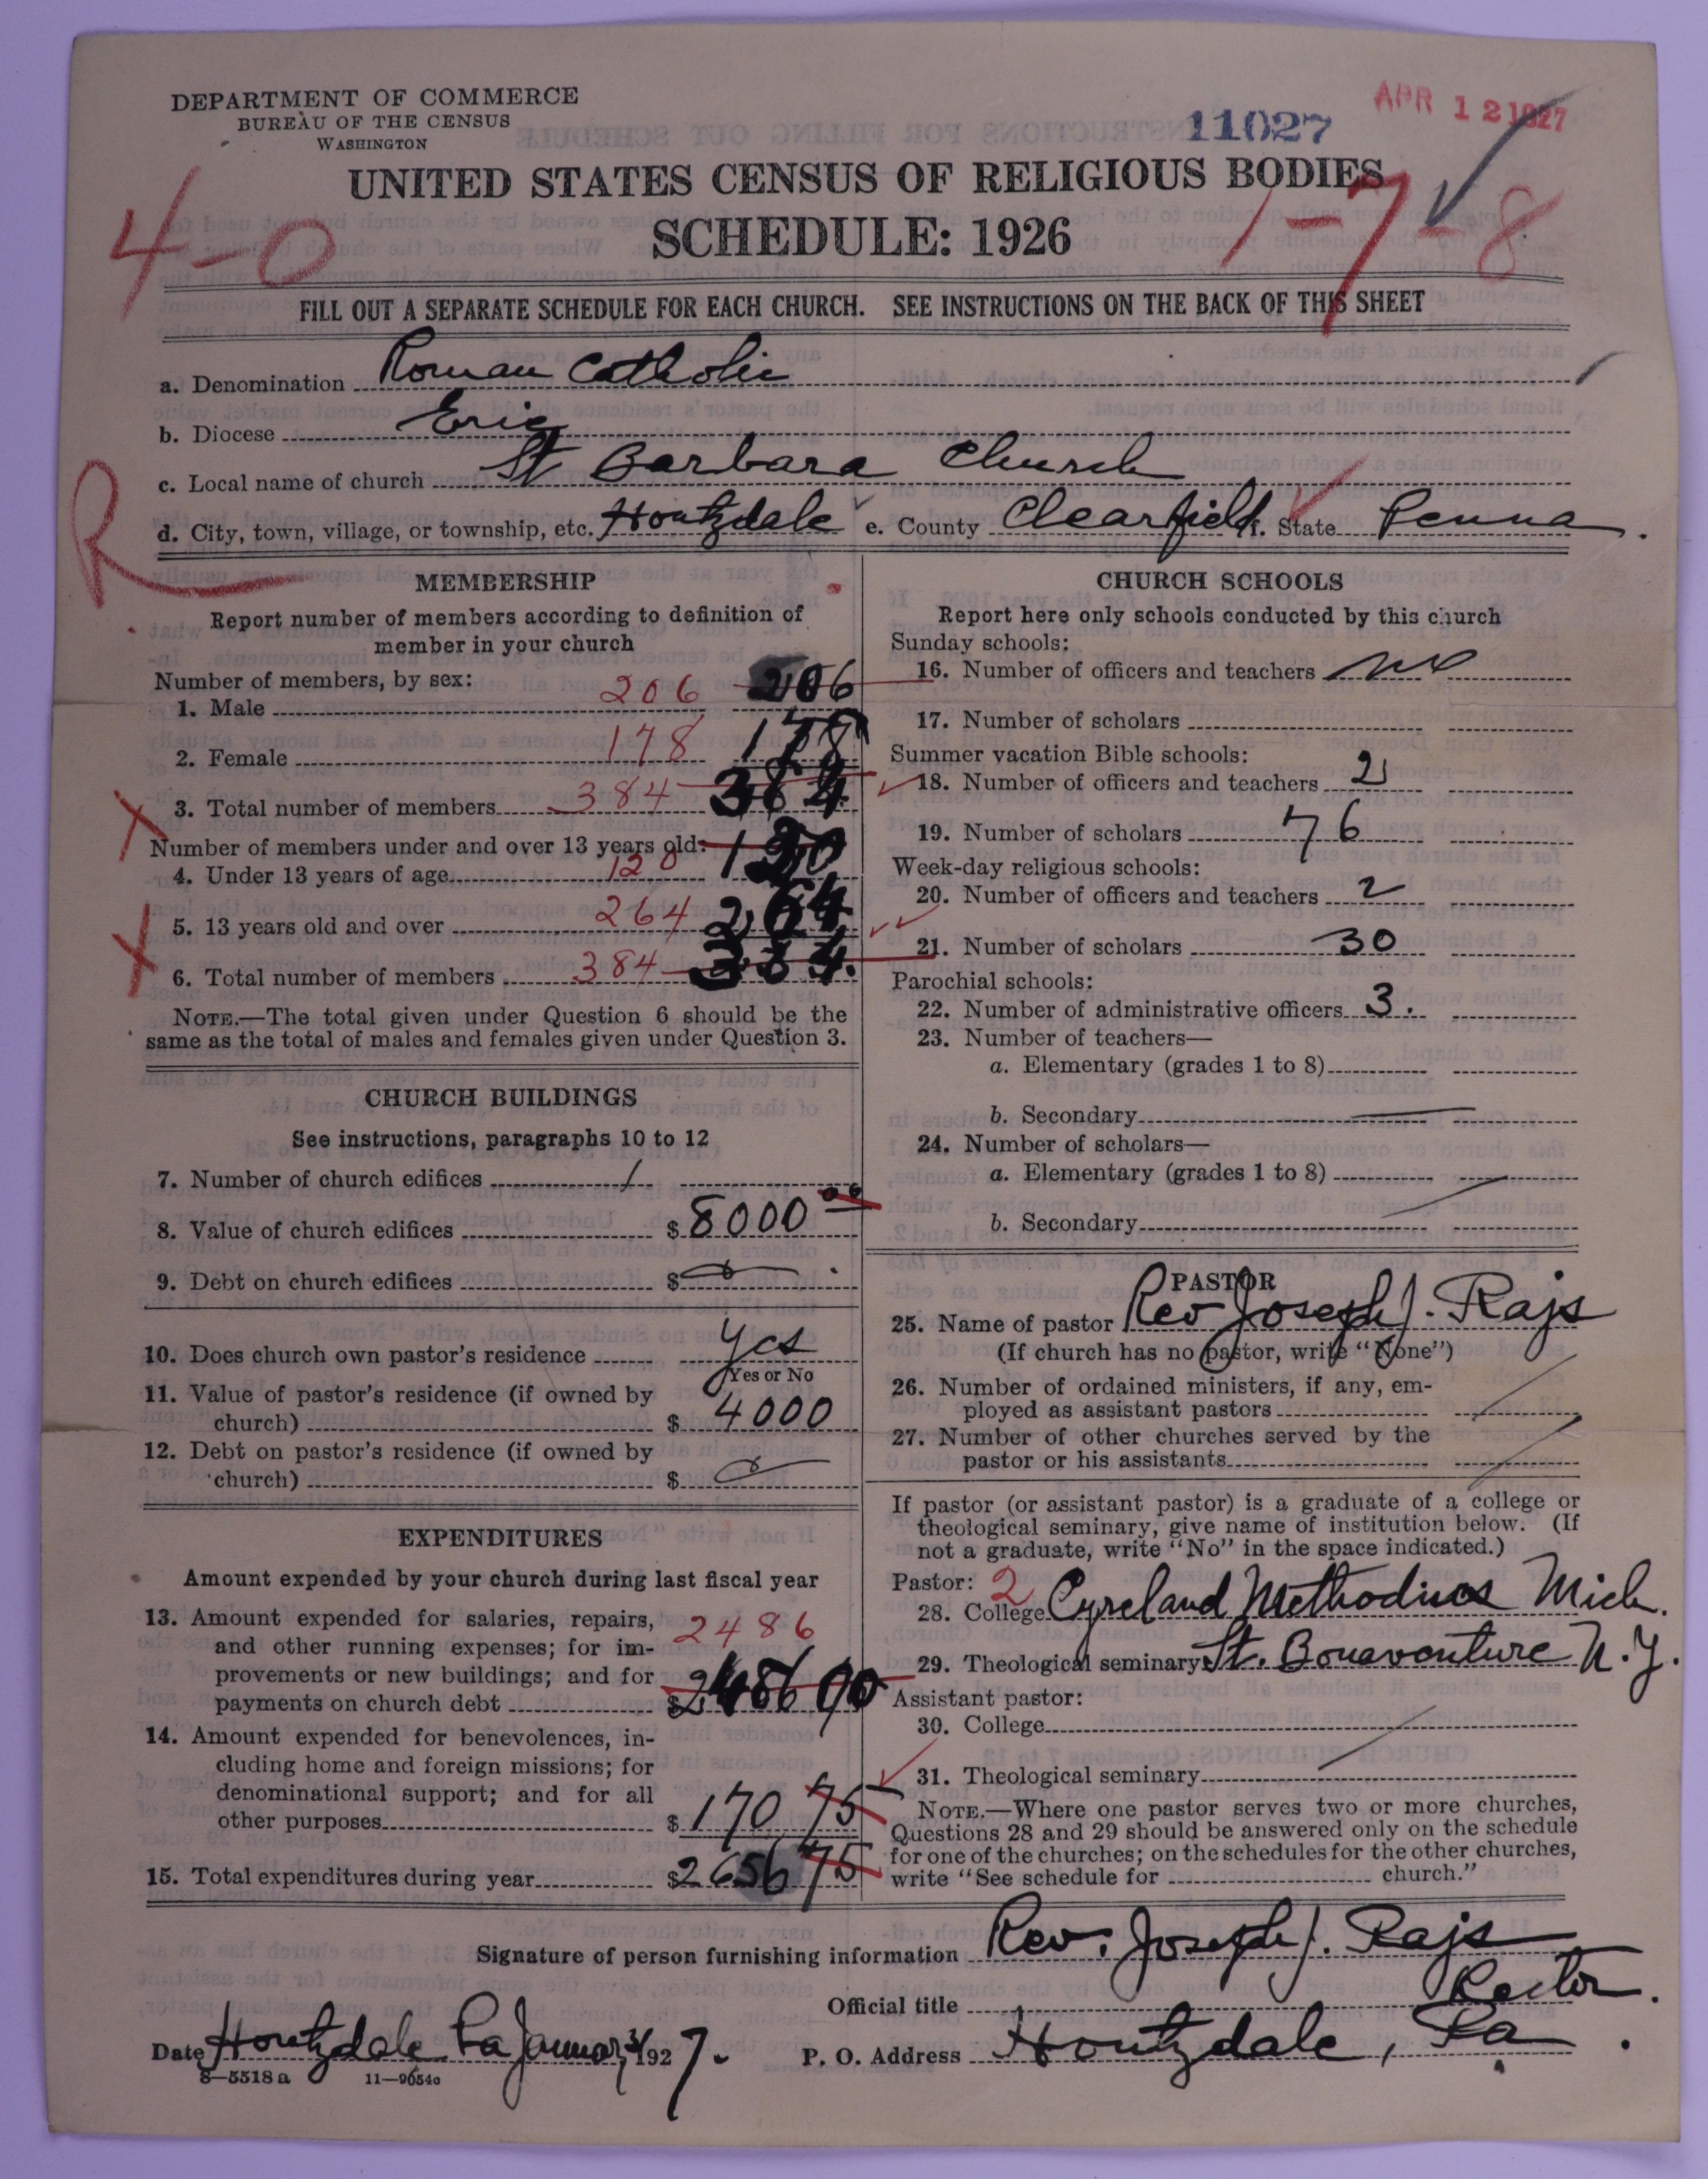 DEPARTMENT OF COMMERCE
BUREAU OF THE CENSUS
WASHINGTON
11027
APR 12 1927
UNITED STATES CENSUS OF RELIGIOUS BODIES
SCHEDULE: 1926
4-0
1-7-8
FILL OUT A SEPARATE SCHEDULE FOR EACH CHURCH. SEE INSTRUCTIONS ON THE BACK OF THIS SHEET
a. Denomination Roman Catholic
b. Diocese Erie
c. Local name of church St Barbara Church
d. City, town, village, or township, etc. Houtzdale e. County Clearfield f. State Penna.
R
MEMBERSHIP
Report number of members according to definition of
member in your church
Number of members, by sex:
1. Male 206 206
2. Female 178 178
3. Total number of members 384 384
Number of members under and over 13 years old:
4. Under 13 years of age 120 120
5. 13 years old and over 264 264
6. Total number of members 384 384.
NOTE.—The total given under Question 6 should be the
same as the total of males and females given under Question 3.
CHURCH BUILDINGS
See instructions, paragraphs 10 to 12
7. Number of church edifices 1
8. Value of church edifices $8000 00
9. Debt on church edifices $ 0
10. Does church own pastor's residence Yes
Yes or No
11. Value of pastor's residence (if owned by
church) $ 4000
12. Debt on pastor's residence (if owned by
church) $ 0
EXPENDITURES
Amount expended by your church during last fiscal year
13. Amount expended for salaries, repairs, 2486
and other running expenses; for im-
provements or new buildings; and for
payments on church debt $2486 00
14. Amount expended for benevolences, in-
cluding home and foreign missions; for
denominational support; and for all
other purposes $170 75
15. Total expenditures during year $2656 75
CHURCH SCHOOLS
Report here only schools conducted by this church
Sunday schools:
16. Number of officers and teachers no
17. Number of scholars
Summer vacation Bible schools:
18. Number of officers and teachers 2
19. Number of scholars 76
Week-day religious schools:
20. Number of officers and teachers 2
21. Number of scholars 30
Parochial schools:
22. Number of administrative officers 3.
23. Number of teachers—
a. Elementary (grades 1 to 8)
b. Secondary
24. Number of scholars—
a. Elementary (grades 1 to 8)
b. Secondary
PASTOR
25. Name of pastor Rev Joseph J. Rajs
(If church has no pastor, write "None")
26. Number of ordained ministers, if any, em-
ployed as assistant pastors
27. Number of other churches served by the
pastor or his assistants
If pastor (or assistant pastor) is a graduate of a college or
theological seminary, give name of institution below. (If
not a graduate, write "No" in the space indicated.)
Pastor: 2
28. College Cyrel and Methodius Mich.
29. Theological seminary St. Bonaventure N.Y.
Assistant pastor:
30. College
31. Theological seminary
NOTE.—Where one pastor serves two or more churches,
Questions 28 and 29 should be answered only on the schedule
for one of the churches; on the schedules for the other churches,
write "See schedule for church."
Signature of person furnishing information Rev. Joseph J. Rajs
Official title Rector.
Date Houtzdale Pa January 3/ 1927. P. O. Address Houtzdale, Pa.
8—5518 a 11—9054c